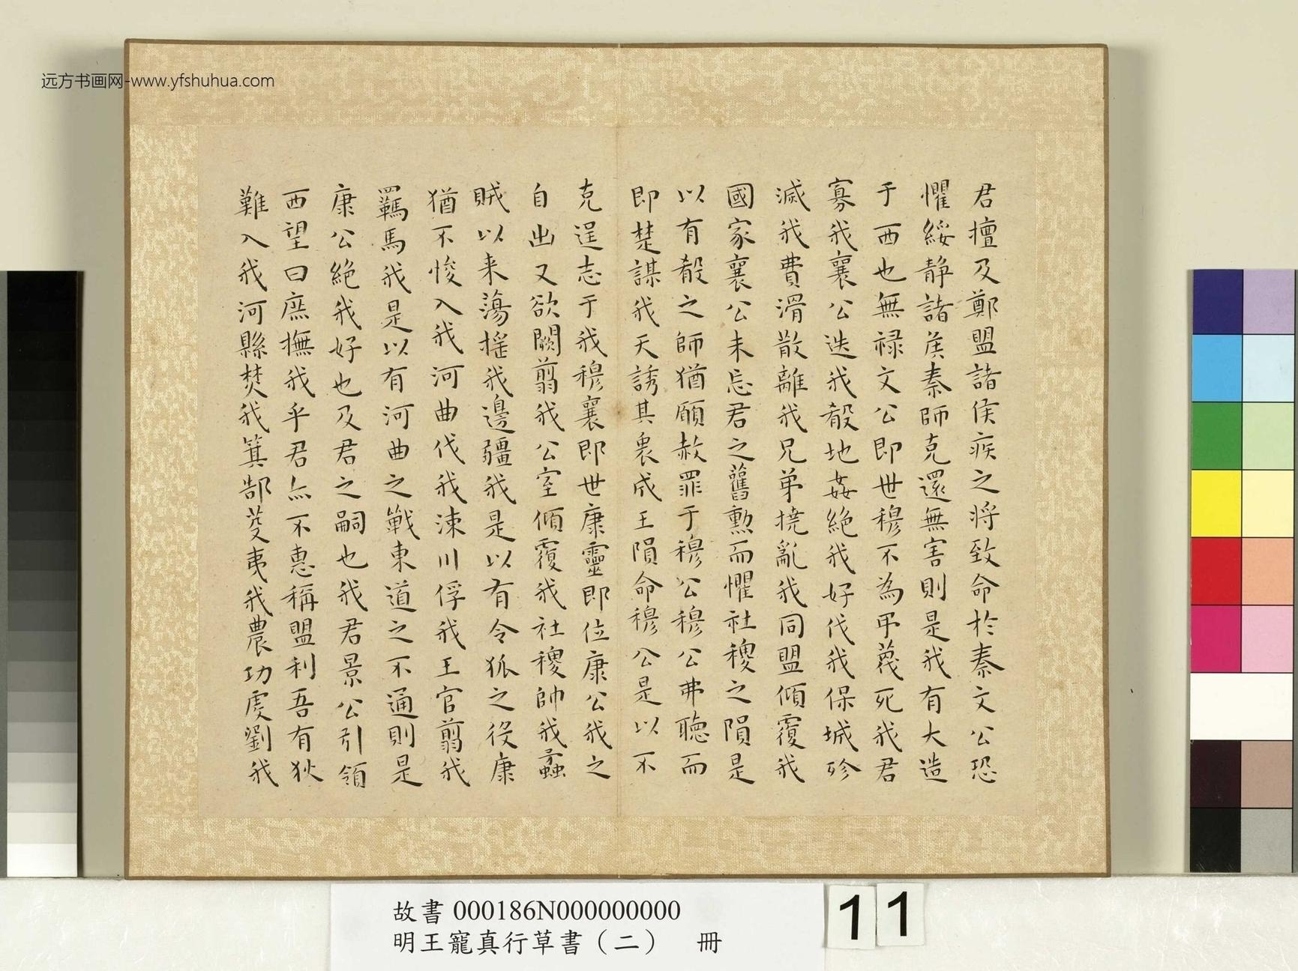 远方书画网-www.yfshuhua.com
君擅及鄭盟諸侯疾之将致命於秦文公恐
懼綏静諸矦秦師克還無害則是我有大造
于西也無禄文公即世穆不為弔蔑死我君
寡我襄公迭我殽地姦絶我好伐我保城殄
滅我費滑散離我兄弟撓亂我同盟傾覆我
國家襄公未忘君之舊勲而懼社稷之隕是
以有殽之師猶願赦罪于穆公穆公弗聴而
即楚謀我天誘其衷成王隕命穆公是以不
克逞志于我穆襄即世康靈即位康公我之
自出又欲闕翦我公室傾覆我社稷帥我蟊
賊以来蕩摇我邊疆我是以有令狐之役康
猶不悛入我河曲伐我涑川俘我王官翦我
羈馬我是以有河曲之戰東道之不通則是
康公絶我好也及君之嗣也我君景公引領
西望曰庶撫我乎君亦不惠稱盟利吾有狄
難入我河縣焚我箕郜芟夷我農功虔劉我
故書 000186N000000000
明王寵真行草書（二） 冊
11